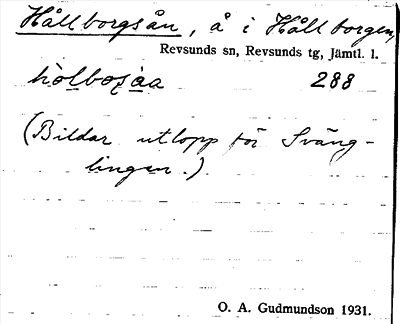 Hållborgsån, å i Hållborgen,
Revsunds sn, Revsunds tg, Jämtl. l.
hòlbosàa 288
(Bildar utlopp för Sväng-
lingen.).
O. A. Gudmundson 1931.